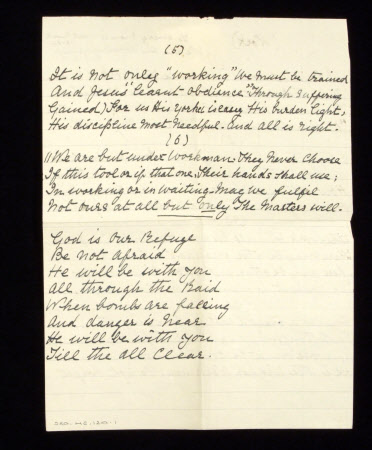 (5)
It is not only "working" We must be trained
And Jesus "learnt obedience" Through Suffering
Gained) For us His Yoke is easy His burden light,
His discipline most needful. And all is right.
(6)
"We are but under Workman. They Never Choose
If this tool or if that one Their hands shall use;
In working or in waiting May we fulfil
Not ours at all but only The Masters will.
God is Our Refuge
Be not afraid
He will be with you
All through the Raid
When bombs are falling
And danger is Near
He will be with you
Till the all Clear.